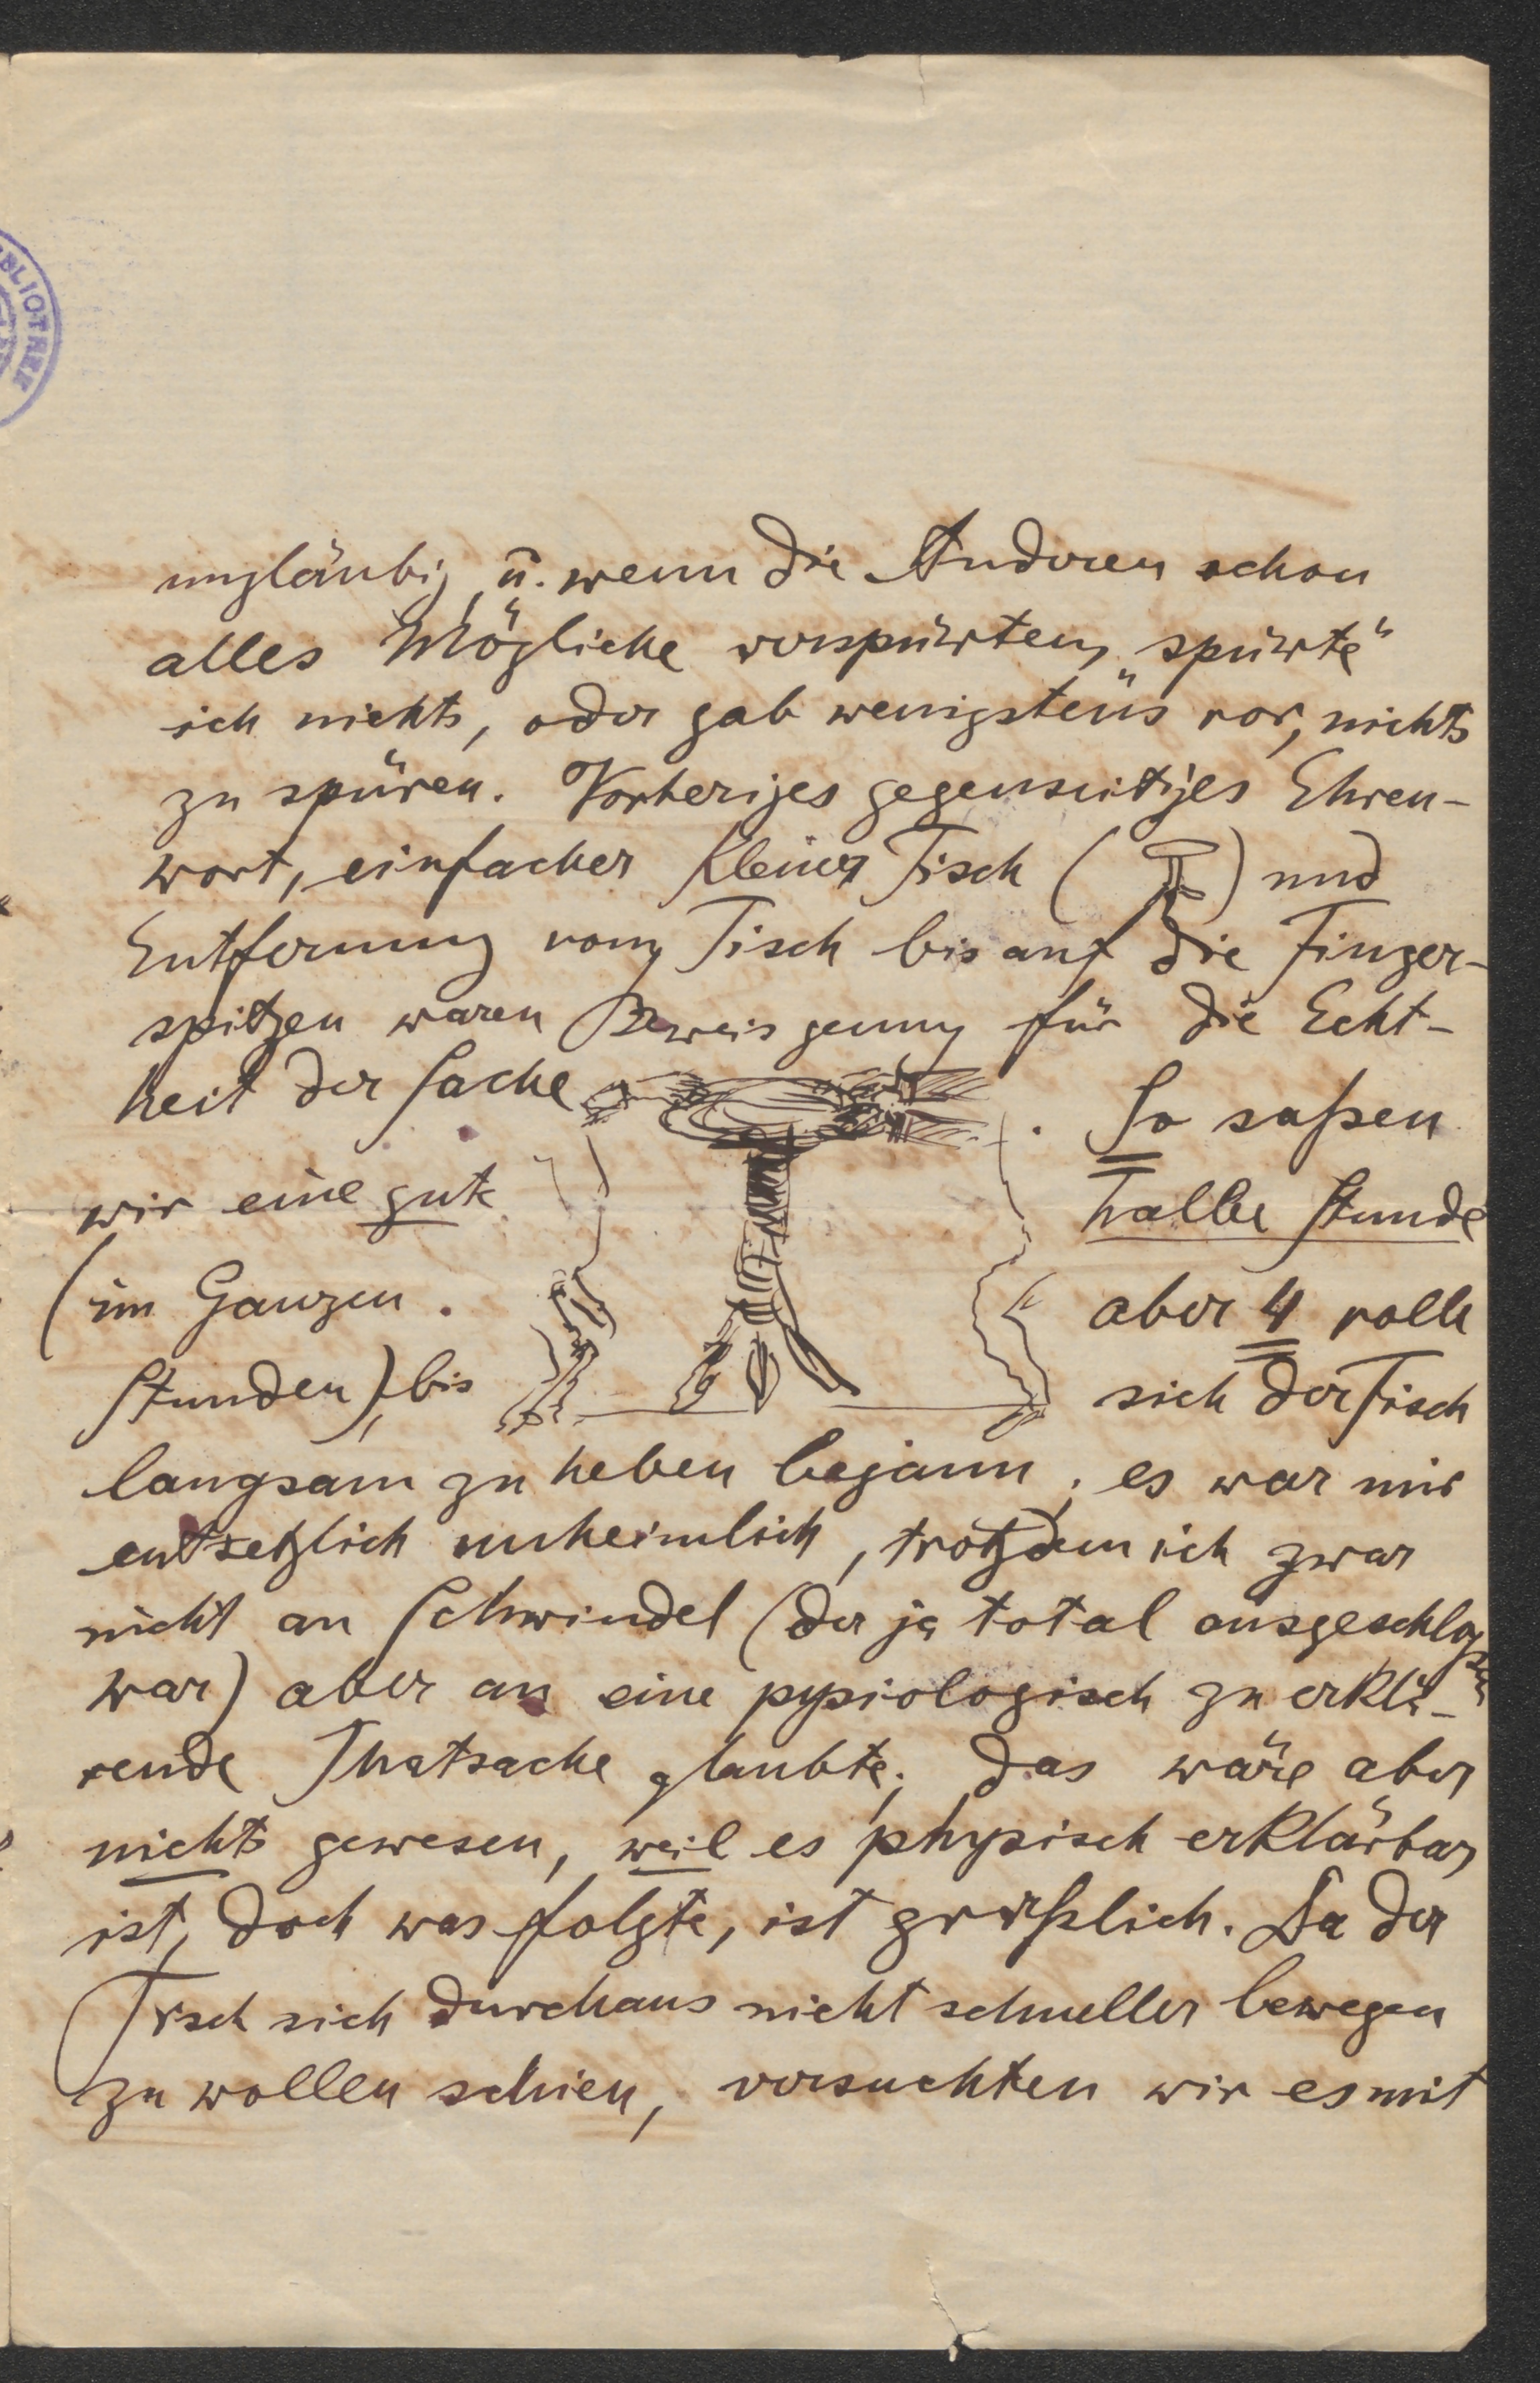 BLIOTHEK
ungläubig, u. wenn die Anderen schon
alles Mögliche verspürten, „spürte“
ich nichts, oder gab wenigstens vor, nichts
zu spüren. Vorheriges gegenseitiges Ehren-
wort, einfacher kleiner Tisch ( ) und
Entfernung vom Tisch bis auf die Finger-
spitzen waren Beweis genug für die Echt-
heit der Sache . So saßen
wir eine gute halbe Stunde
(im Ganzen . aber 4 volle
Stunden), bis sich der Tisch
langsam zu heben begann; es war mir
entsetzlich unheimlich, trotzdem ich zwar
nicht an Schwindel (der ja total ausgeschloßen
war) aber an eine pysiologisch zu erklä-
rende Thatsache glaubte; das wäre aber
nichts gewesen, weil es physisch erklärbar
ist, doch was folgte, ist gräßlich. Da der
Tisch sich durchaus nicht schneller bewegen
zu wollen schien, versuchten wir es mit